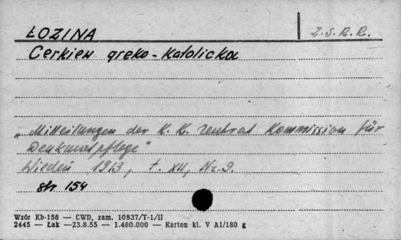 ŁOZINA
Z.S.R.R.
Cerkiew greko-katolicka
„Mitteilungen der K. K. Zentral Kommission für
Denkmalpflege"
Wiedeń 1913, t. XII, Nr. 9.
str. 154
Wzór Kb-156 — CWD, zam. 10837/T-1/II
2445 — Łak —23.8.55 — 1.460.000 — Karton kl. V A1/180 g